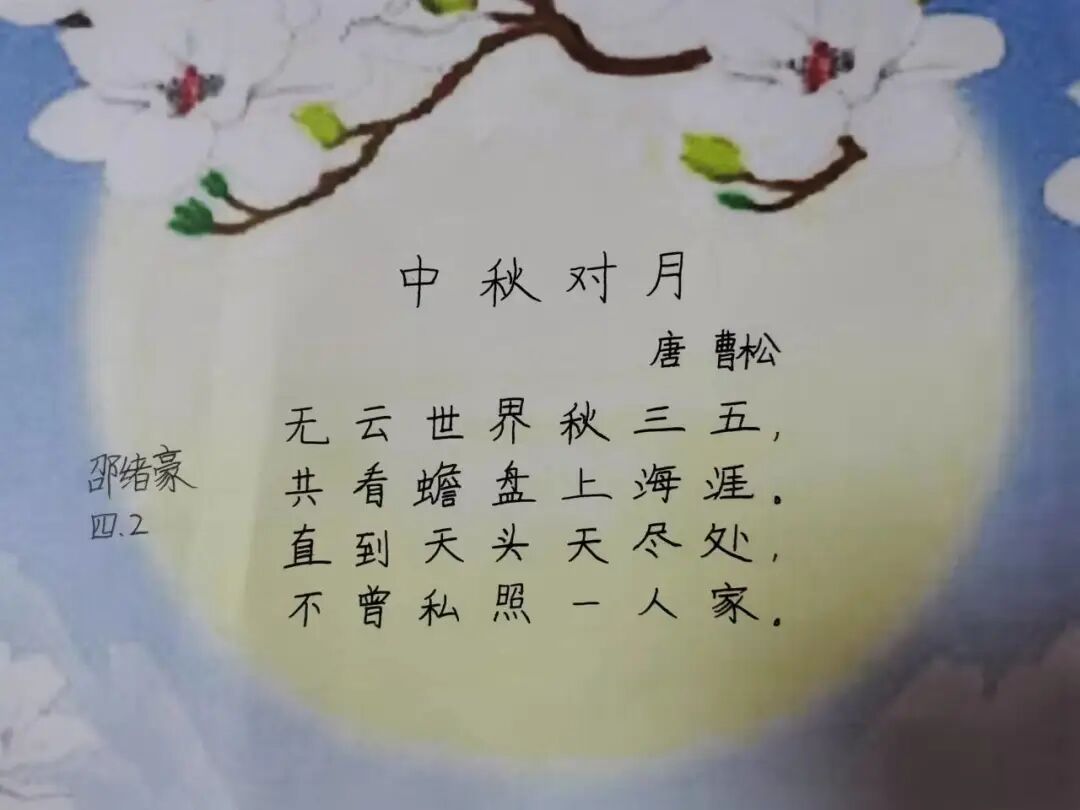 中秋对月
唐 曹松
无云世界秋三五,
共看蟾盘上海涯。
直到天头天尽处,
不曾私照一人家。
邵绪豪
四.2